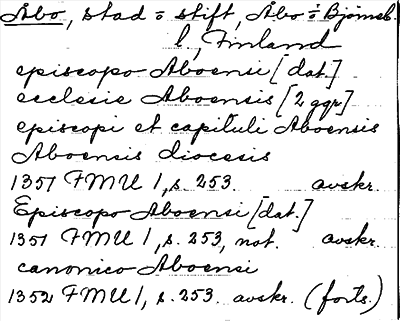 Åbo, stad o stift, Åbo o Björneb.
l, Finland
episcopo Aboensi [dat.]
ecclesie Aboensis [2 ggr]
episcopi et capituli Aboensis
Aboensis diocesis
1351 FMU 1, s. 253. avskr.
Episcopo Aboensi [dat.]
1351 FMU 1, s. 253, not. avskr.
canonico Aboensi
1352 FMU 1, s. 253 avskr. (forts.)